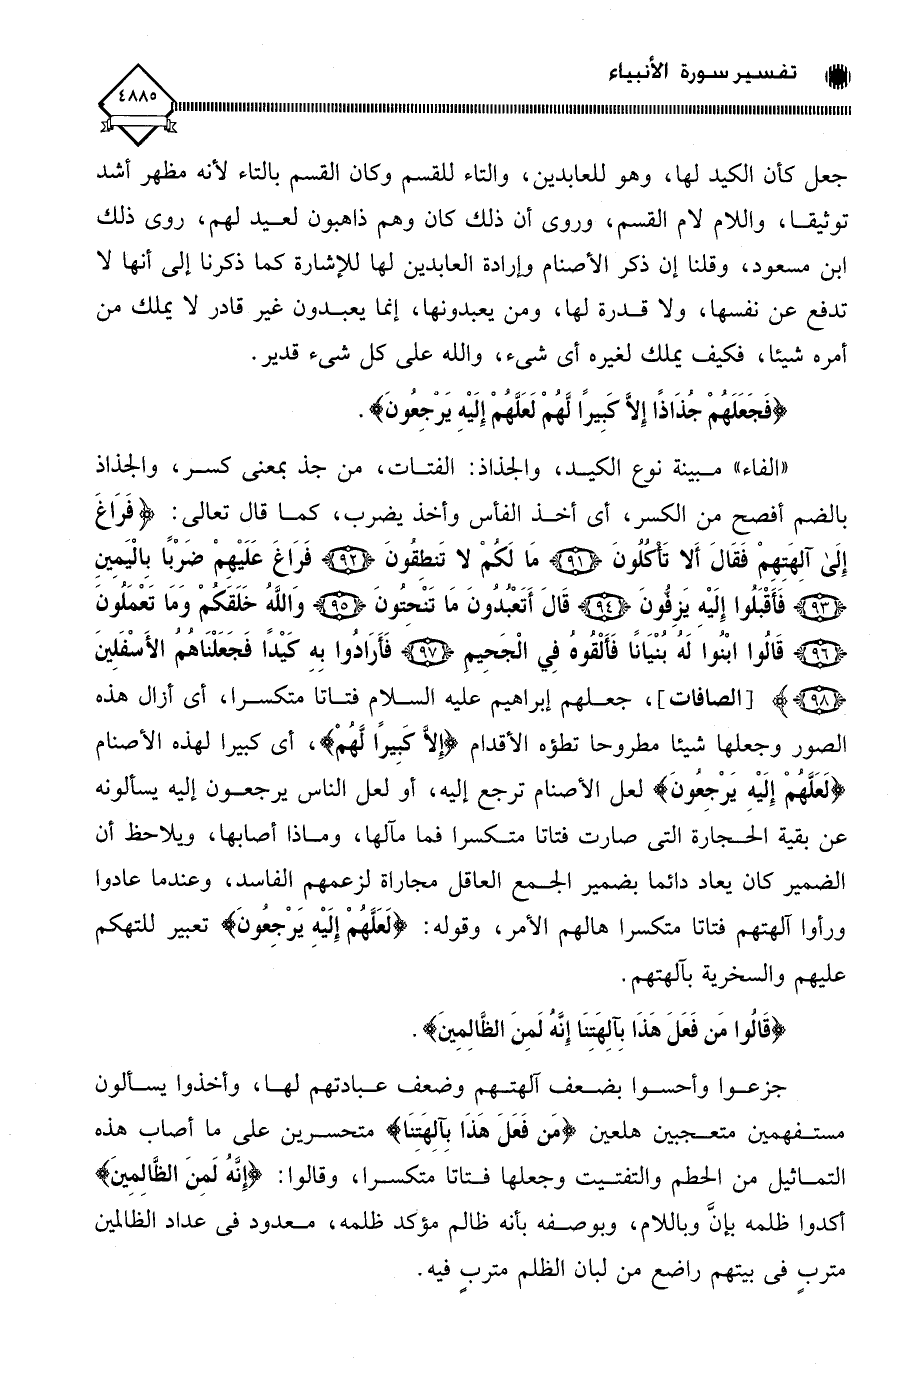 تفسير سورة الأنبياء
٤٨٨٥
جعل كأن الكيد لها، وهو للعابدين، والتاء للقسم وكان القسم بالتاء لأنه مظهر أشد
توثيقا، واللام لام القسم، وروى أن ذلك كان وهم ذاهبون لعيد لهم، روى ذلك
ابن مسعود، وقلنا إن ذكر الأصنام وإرادة العابدين لها للإشارة كما ذكرنا إلى أنها لا
تدفع عن نفسها، ولا قدرة لها، ومن يعبدونها، إنما يعبدون غير قادر لا يملك من
أمره شيئا، فكيف يملك لغيره أى شىء، والله على كل شىء قدير.
﴿فَجَعَلَهُمْ جُذَاذًا إِلاَّ كَبِيرًا لَّهُمْ لَعَلَّهُمْ إِلَيْهِ يَرْجِعُونَ﴾.
«الفاء» مبينة نوع الكيد، والجذاذ: الفتات، من جذ بمعنى كسر، والجذاذ
بالضم أفصح من الكسر، أى أخذ الفأس وأخذ يضرب، كما قال تعالى: ﴿فَرَاغَ
إِلَىٰ آلِهَتِهِمْ فَقَالَ أَلا تَأْكُلُونَ ﴿٩١﴾ مَا لَكُمْ لا تَنطِقُونَ ﴿٩٢﴾ فَرَاغَ عَلَيْهِمْ ضَرْبًا بِالْيَمِينِ
﴿٩٣﴾ فَأَقْبَلُوا إِلَيْهِ يَزِفُّونَ ﴿٩٤﴾ قَالَ أَتَعْبُدُونَ مَا تَنْحِتُونَ ﴿٩٥﴾ وَاللَّهُ خَلَقَكُمْ وَمَا تَعْمَلُونَ
﴿٩٦﴾ قَالُوا ابْنُوا لَهُ بُنْيَانًا فَأَلْقُوهُ فِي الْجَحِيمِ ﴿٩٧﴾ فَأَرَادُوا بِهِ كَيْدًا فَجَعَلْنَاهُمُ الأَسْفَلِينَ
﴿٩٨﴾﴾ [الصافات]، جعلهم إبراهيم عليه السلام فتاتا متكسرا، أى أزال هذه
الصور وجعلها شيئا مطروحا تطؤه الأقدام ﴿إِلاَّ كَبِيرًا لَّهُمْ﴾، أى كبيرا لهذه الأصنام
﴿لَعَلَّهُمْ إِلَيْهِ يَرْجِعُونَ﴾ لعل الأصنام ترجع إليه، أو لعل الناس يرجعون إليه يسألونه
عن بقية الحجارة التى صارت فتاتا متكسرا فما مآلها، وماذا أصابها، ويلاحظ أن
الضمير كان يعاد دائما بضمير الجمع العاقل مجاراة لزعمهم الفاسد، وعندما عادوا
ورأوا آلهتهم فتاتا متكسرا هالهم الأمر، وقوله: ﴿لَعَلَّهُمْ إِلَيْهِ يَرْجِعُونَ﴾ تعبير للتهكم
عليهم والسخرية بآلهتهم.
﴿قَالُوا مَن فَعَلَ هَذَا بِآلِهَتِنَا إِنَّهُ لَمِنَ الظَّالِمِينَ﴾.
جزعوا وأحسوا بضعف آلهتهم وضعف عبادتهم لها، وأخذوا يسألون
مستفهمين متعجبين هلعين ﴿مَن فَعَلَ هَذَا بِآلِهَتِنَا﴾ متحسرين على ما أصاب هذه
التماثيل من الحطم والتفتيت وجعلها فتاتا متكسرا، وقالوا: ﴿إِنَّهُ لَمِنَ الظَّالِمِينَ﴾
أكدوا ظلمه بإنَّ وباللام، وبوصفه بأنه ظالم مؤكد ظلمه، معدود فى عداد الظالمين
متربٍ فى بيتهم راضع من لبان الظلم متربٍ فيه.